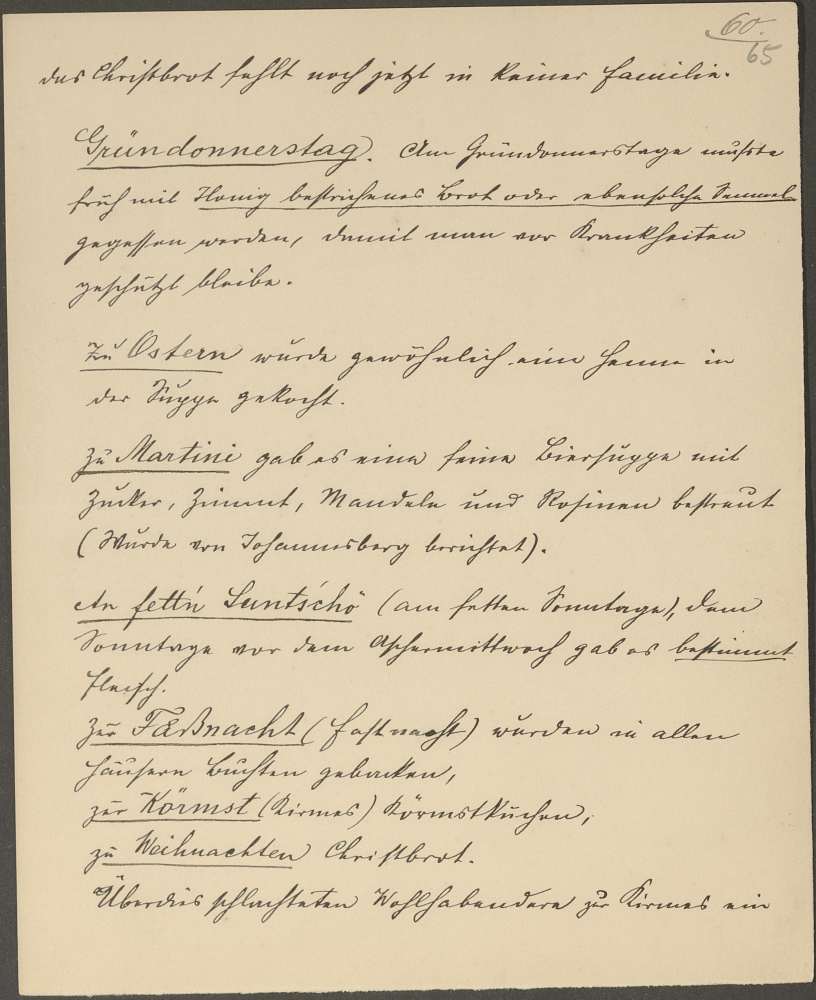 60.
65
das Christbrot fehlt noch jetzt in keiner Familie.
Gründonnerstag. Am Gründonnerstage mußte
früh mit Honig bestrichenes Brot oder ebensolche Semmel
gegessen werden, damit man vor Krankheiten
geschützt bleibe.
Zu Ostern wurde gewöhnlich eine Henne in
der Suppe gekocht.
Zu Martini gab es eine feine Biersuppe mit
Zucker, Zimmt, Mandeln und Rosinen bestreut
(Wurde von Johannesberg berichtet).
An fettń Suntśchö (am fetten Sonntage), dem
Sonntage vor dem Aschermittwoch gab es bestimmt
Fleisch.
Zur Fäßnacht (Fastnacht) wurden in allen
Häusern Buchten gebacken,
zur Körmst (Kirmes) Körmstkuchen,
zu Weihnachten Christbrot.
Überdies schlachteten Wohlhabendere zur Kirmes ein